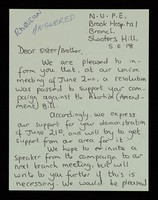 ANSWERED
N.U.P.E.
Brook Hospital
Branch,
Shooters Hill.
5.6.78
Dear Sister/Brother,
We are pleased to in-
form you that, at our union
meeting of June 2nd, a resolution
was passed to support your cam-
paign against the Abortion (Amend-
ment) Bill.
Accordingly, we express
our support for your demonstration
of June 21st, and will try to get
support from our area for it.
We hope to invite a
speaker from the campaign to our
next branch meeting, but will
write to you further if this is
necessary. We would be pleased